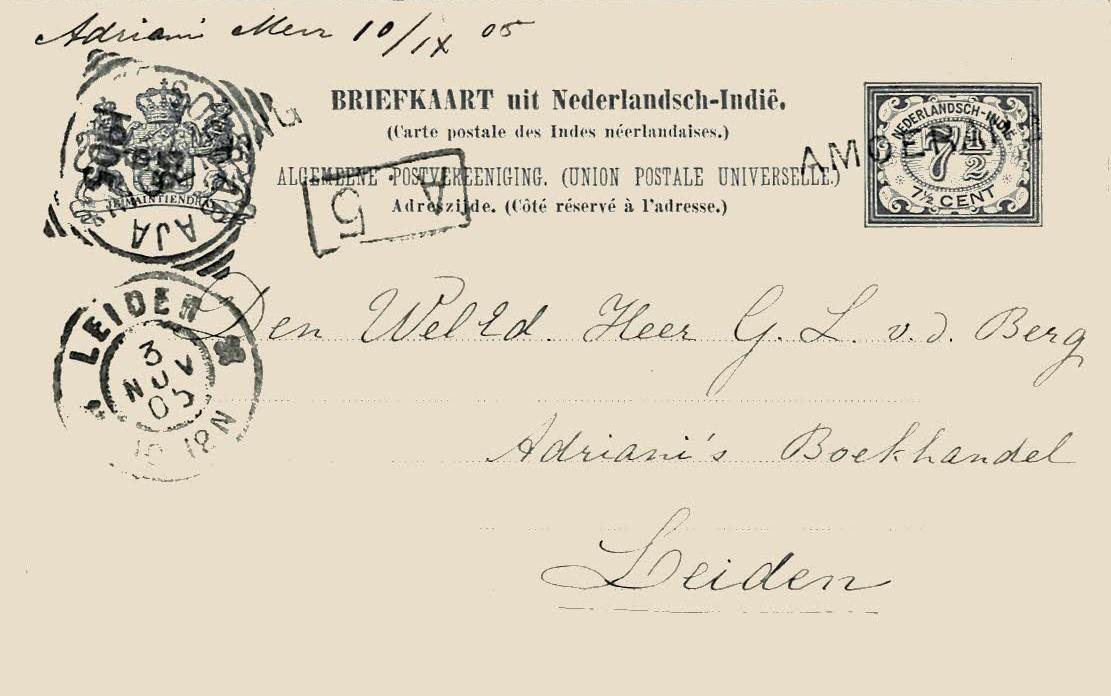 Adriani Merr 10/IX 05
BRIEFKAART uit Nederlandsch-Indië.
(Carte postale des Indes néerlandaises.)
ALGEMEENE POSTVEREENIGING. (UNION POSTALE UNIVERSELLE.)
Adreszijde. (Côté réservé à l'adresse.)
NEDERLANDSCH-INDIË
7 1/2
7½ CENT
JE MAINTIENDRAI
A
5
LEIDEN
3
NOV
05
Den WelEd. Heer G. L. v. d. Berg
Adriani's Boekhandel
Leiden